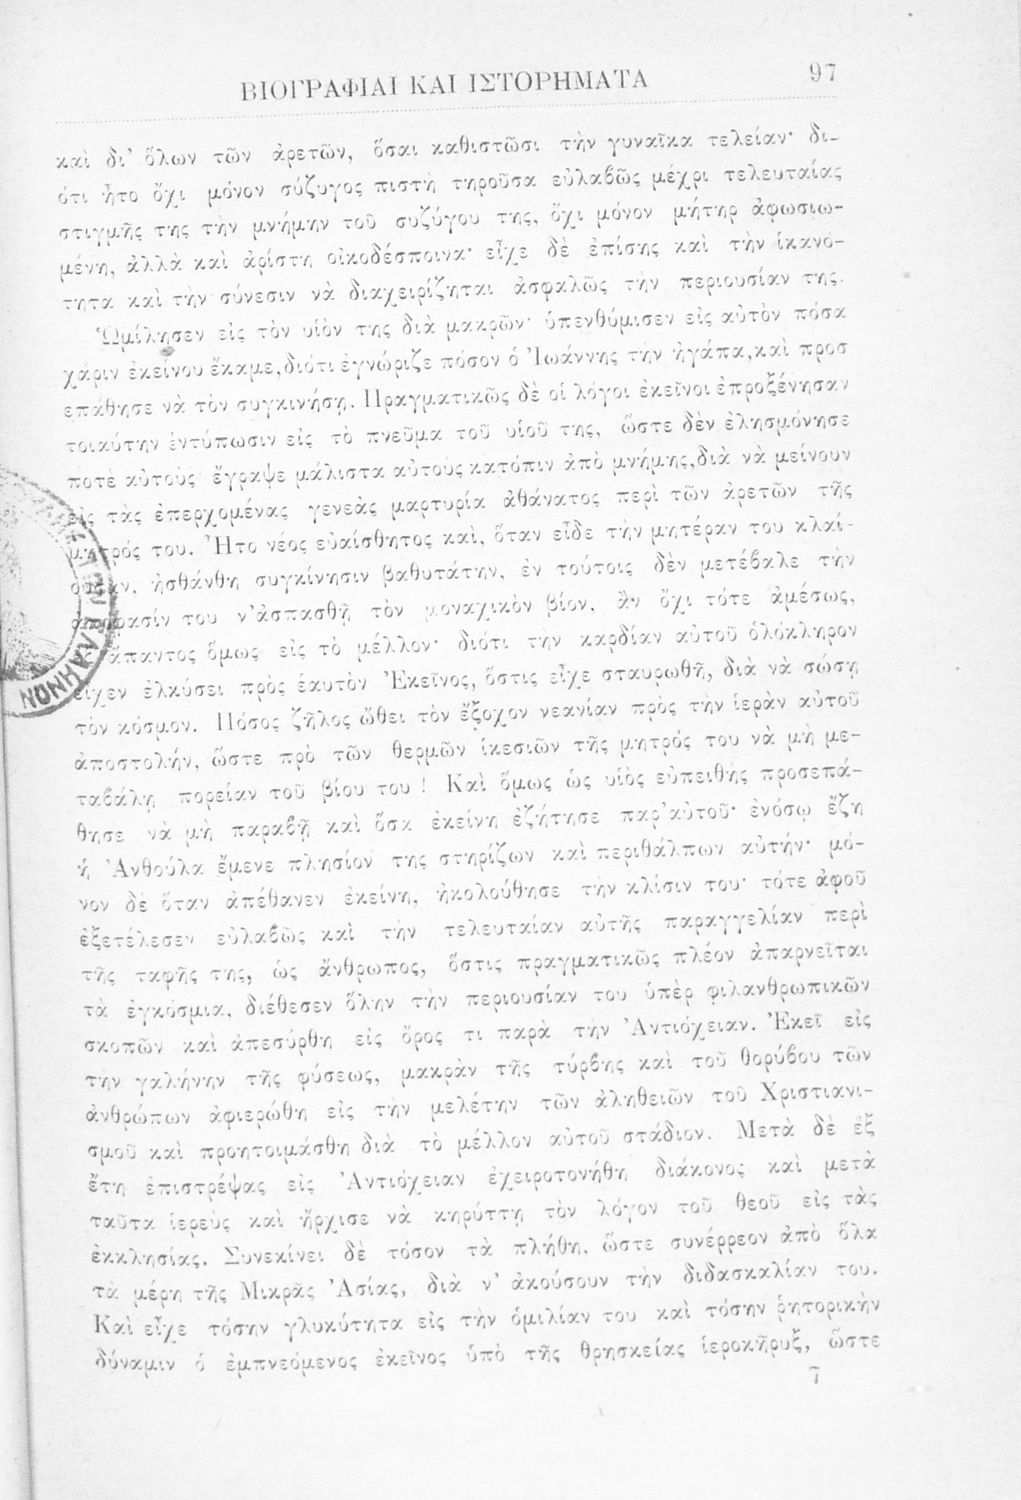 ΒΙΟΓΡΑΦΙΑΙ ΚΑΙ ΙΣΤΟΡΗΜΑΤΑ 97
καὶ δι' ὅλων τῶν ἀρετῶν, ὅσαι καθιστῶσι τὴν γυναῖκα τελείαν· δι-
ότι ἦτο ὄχι μόνον σύζυγος πιστὴ τηροῦσα εὐλαβῶς μέχρι τελευταίας
στιγμῆς της τὴν μνήμην τοῦ συζύγου της, ὄχι μόνον μήτηρ ἀφωσιω-
μένη, ἀλλὰ καὶ ἀρίστη οἰκοδέσποινα· εἶχε δὲ ἐπίσης καὶ τὴν ἱκανό-
τητα καὶ τὴν σύνεσιν νὰ διαχειρίζηται ἀσφαλῶς τὴν περιουσίαν της.
Ὡμίλησεν εἰς τὸν υἱὸν της διὰ μακρῶν· ὑπενθύμισεν εἰς αὐτὸν πόσα
χάριν ἐκείνου ἔκαμε, διότι ἐγνώριζε πόσον ὁ Ἰωάννης τὴν ἠγάπα, καὶ προσ
επάθησε νὰ τὸν συγκινήσῃ. Πραγματικῶς δὲ οἱ λόγοι ἐκεῖνοι ἐπροξένησαν
τοιαύτην ἐντύπωσιν εἰς τὸ πνεῦμα τοῦ υἱοῦ της, ὥστε δὲν ἐλησμόνησε
ποτὲ αὐτοὺς· ἔγραψε μάλιστα αὐτοὺς κατόπιν ἀπὸ μνήμης, διὰ νὰ μείνουν
εἰς τὰς ἐπερχομένας γενεὰς μαρτυρία ἀθάνατος περὶ τῶν ἀρετῶν τῆς
μητρός του. Ἦτο νέος εὐαίσθητος καὶ, ὅταν εἶδε τὴν μητέραν του κλαί-
ουσαν, ᾐσθάνθη συγκίνησιν βαθυτάτην, ἐν τούτοις δὲν μετέβαλε τὴν
ἀπόφασίν του ν' ἀσπασθῇ τὸν μοναχικὸν βίον, ἂν ὄχι τότε ἀμέσως,
ἅπαντος ὅμως εἰς τὸ μέλλον· διότι τὴν καρδίαν αὐτοῦ ὁλόκληρον
εἶχεν ἑλκύσει πρὸς ἑαυτὸν Ἐκεῖνος, ὅστις εἶχε σταυρωθῆ, διὰ νὰ σώσῃ
τὸν κόσμον. Πόσος ζῆλος ὤθει τὸν ἔξοχον νεανίαν πρὸς τὴν ἱερὰν αὐτοῦ
ἀποστολήν, ὥστε πρὸ τῶν θερμῶν ἱκεσιῶν τῆς μητρός του νὰ μὴ με-
ταβάλῃ πορείαν τοῦ βίου του! Καὶ ὅμως ὡς υἱὸς εὐπειθὴς προσεπά-
θησε νὰ μὴ παραβῇ καὶ ὅσα ἐκείνη ἐζήτησε παρ' αὐτοῦ· ἐνόσῳ ἔζη
ἡ Ἀνθούλα ἔμενε πλησίον της στηρίζων καὶ περιθάλπων αὐτήν· μό-
νον δὲ ὅταν ἀπέθανεν ἐκείνη, ἠκολούθησε τὴν κλίσιν του· τότε ἀφοῦ
ἐξετέλεσεν εὐλαβῶς καὶ τὴν τελευταίαν αὐτῆς παραγγελίαν περὶ
τῆς ταφῆς της, ὡς ἄνθρωπος, ὅστις πραγματικῶς πλέον ἀπαρνεῖται
τὰ ἐγκόσμια, διέθεσεν ὅλην τὴν περιουσίαν του ὑπὲρ φιλανθρωπικῶν
σκοπῶν καὶ ἀπεσύρθη εἰς ὄρος τι παρὰ τὴν Ἀντιόχειαν. Ἐκεῖ εἰς
τὴν γαλήνην τῆς φύσεως, μακρὰν τῆς τύρβης καὶ τοῦ θορύβου τῶν
ἀνθρώπων ἀφιερώθη εἰς τὴν μελέτην τῶν ἀληθειῶν τοῦ Χριστιανι-
σμοῦ καὶ προητοιμάσθη διὰ τὸ μέλλον αὐτοῦ στάδιον. Μετὰ δὲ ἓξ
ἔτη ἐπιστρέψας εἰς Ἀντιόχειαν ἐχειροτονήθη διάκονος καὶ μετὰ
ταῦτα ἱερεὺς καὶ ἤρχισε νὰ κηρύττῃ τὸν λόγον τοῦ θεοῦ εἰς τὰς
ἐκκλησίας. Συνεκίνει δὲ τόσον τὰ πλήθη, ὥστε συνέρρεον ἀπὸ ὅλα
τὰ μέρη τῆς Μικρᾶς Ἀσίας, διὰ ν' ἀκούσουν τὴν διδασκαλίαν του.
Καὶ εἶχε τόσην γλυκύτητα εἰς τὴν ὁμιλίαν του καὶ τόσην ῥητορικὴν
δύναμιν ὁ ἐμπνεόμενος ἐκεῖνος ὑπὸ τῆς θρησκείας ἱεροκῆρυξ, ὥστε
7
ΤΩΝ ΕΛΛΗΝΩΝ